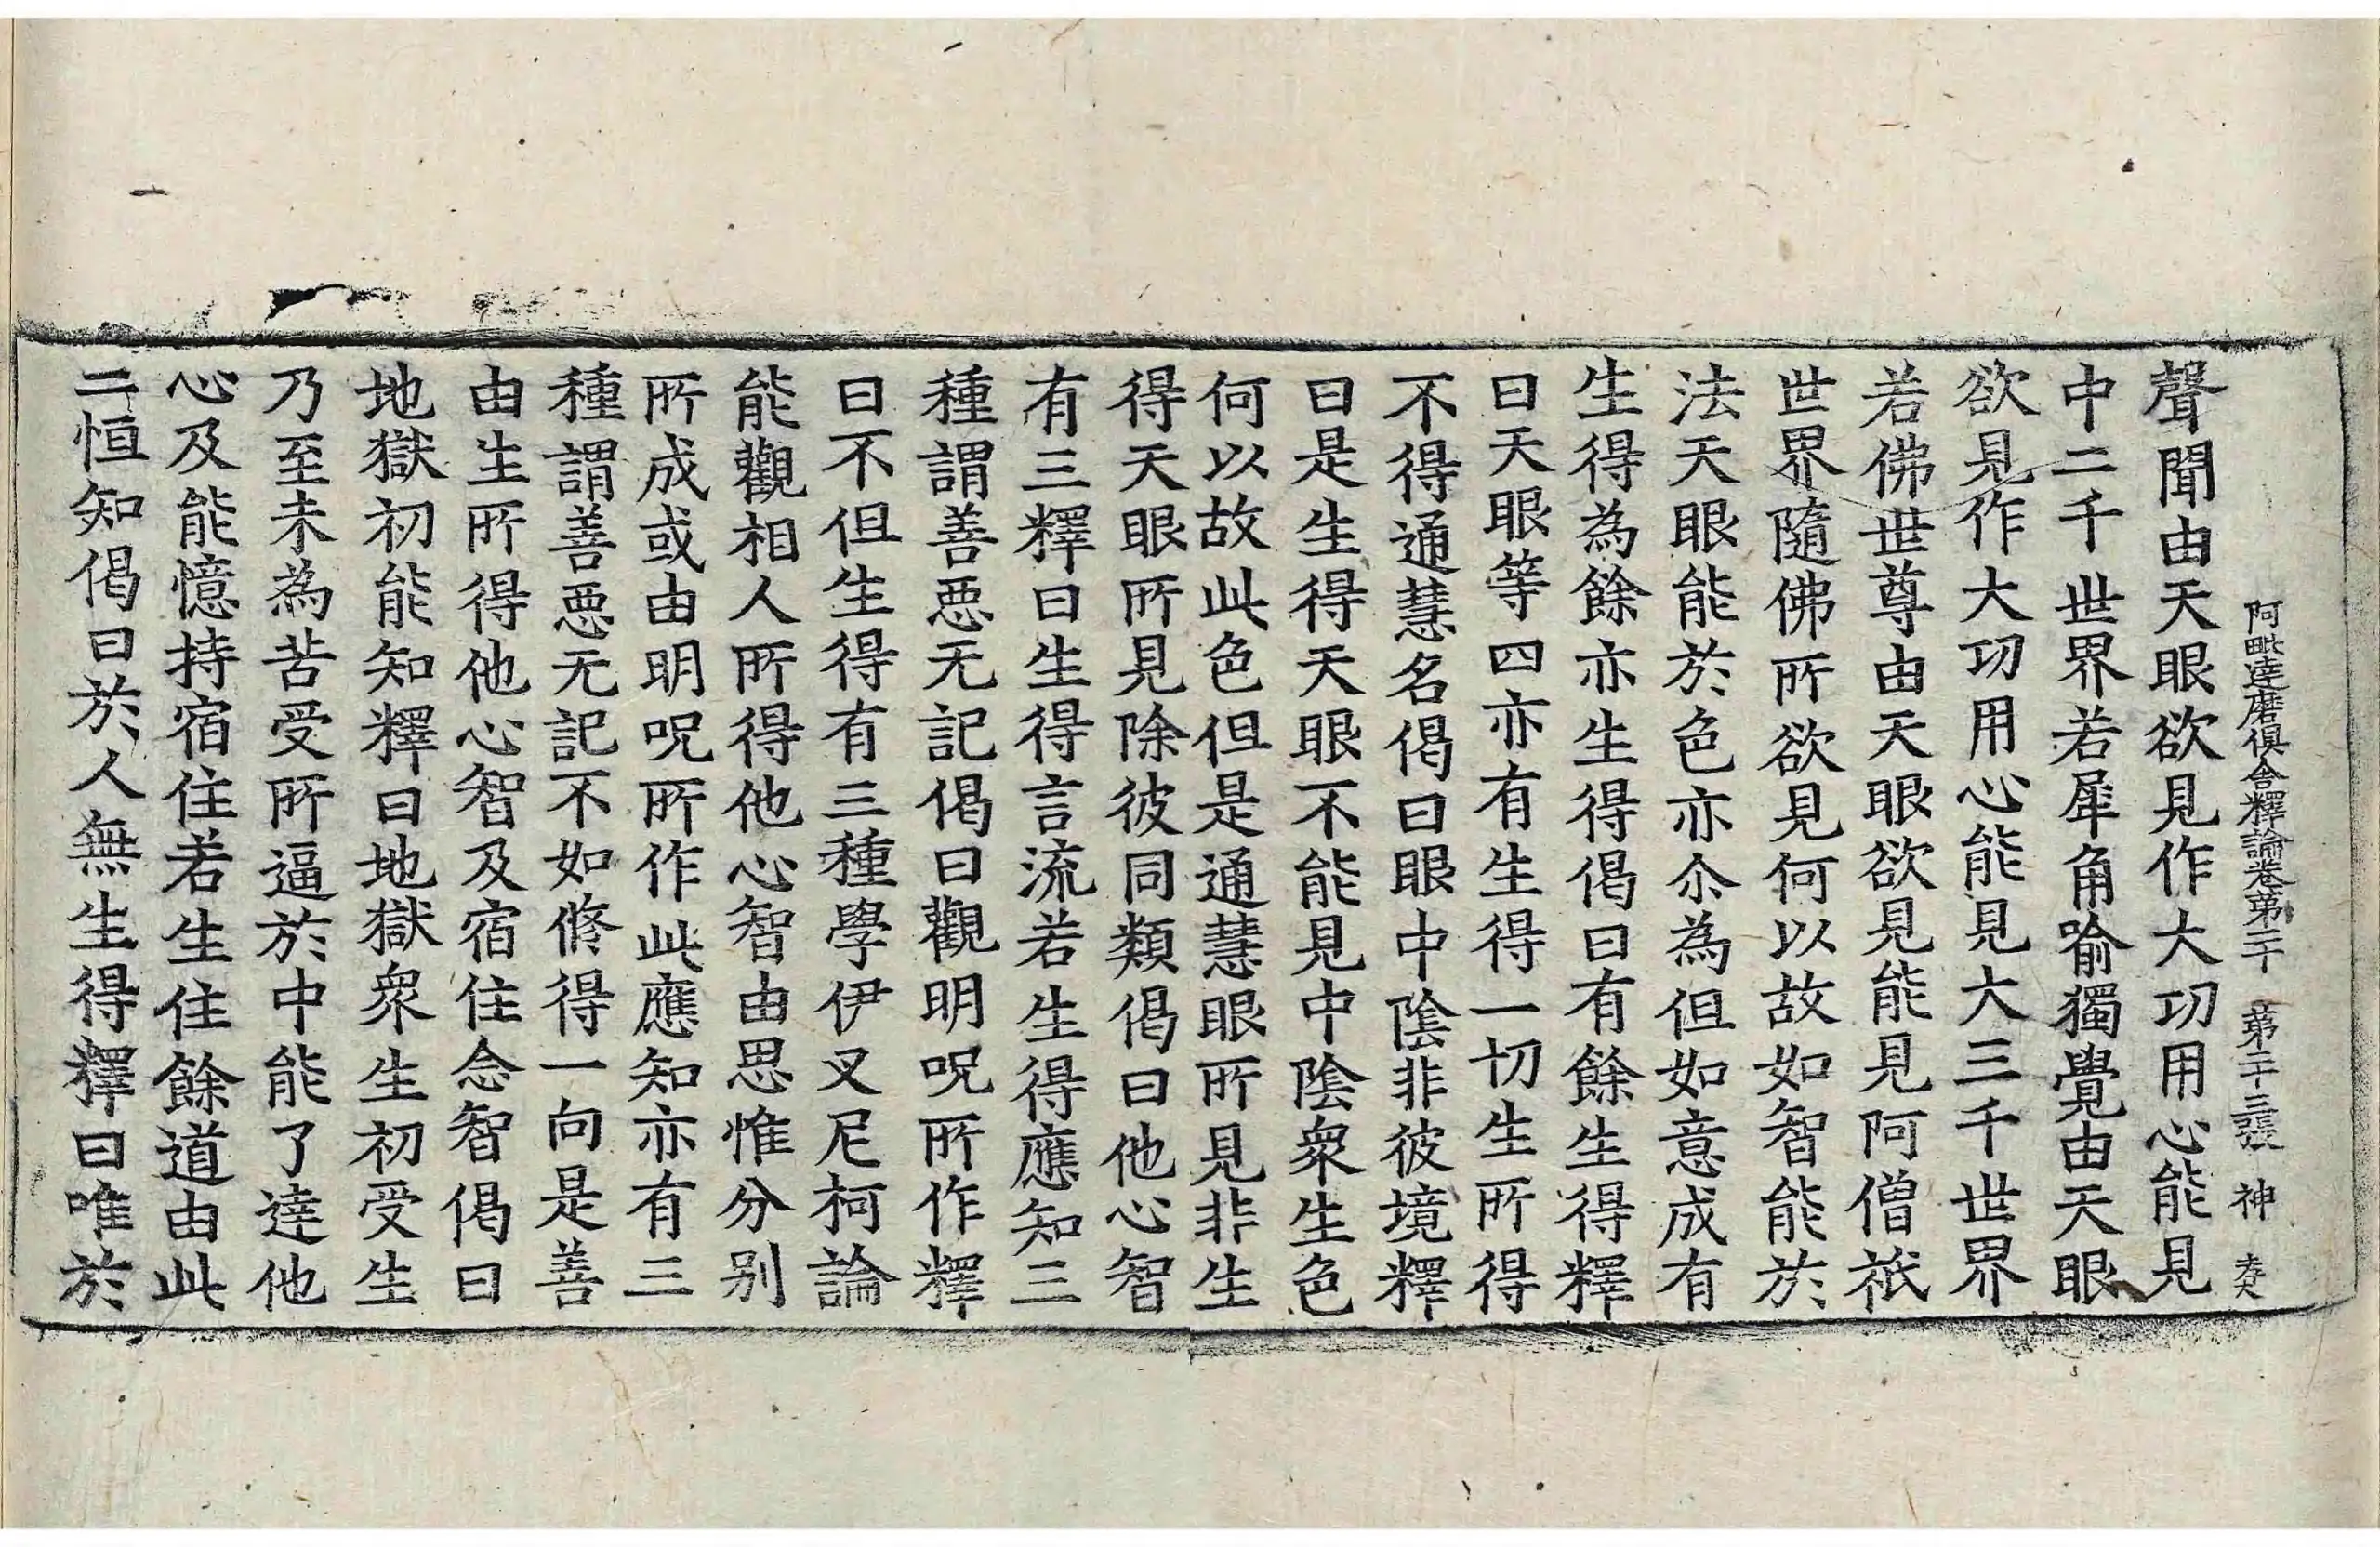 阿毗達磨俱舍釋論卷第二十 第二十三張 神
聲聞由天眼欲見作大功用心能見
中二千世界若犀角喻獨覺由天眼
欲見作大功用心能見大三千世界
若佛世尊由天眼欲見能見阿僧祇
世界隨佛所欲見何以故如智能於
法天眼能於色亦尒為但如意成有
生得為餘亦生得偈曰有餘生得釋
曰天眼等四亦有生得一切生所得
不得通慧名偈曰眼中陰非彼境釋
曰是生得天眼不能見中陰衆生色
何以故此色但是通慧眼所見非生
得天眼所見除彼同類偈曰他心智
有三釋曰生得言流若生得應知三
種謂善惡无記偈曰觀明呪所作釋
曰不但生得有三種學伊叉尼柯論
能觀相人所得他心智由思惟分別
所成或由明呪所作此應知亦有三
種謂善惡无記不如脩得一向是善
由生所得他心智及宿住念智偈曰
地獄初能知釋曰地獄衆生初受生
乃至未為苦受所逼於中能了達他
心及能憶持宿住若生住餘道由此
二恒知偈曰於人無生得釋曰唯於